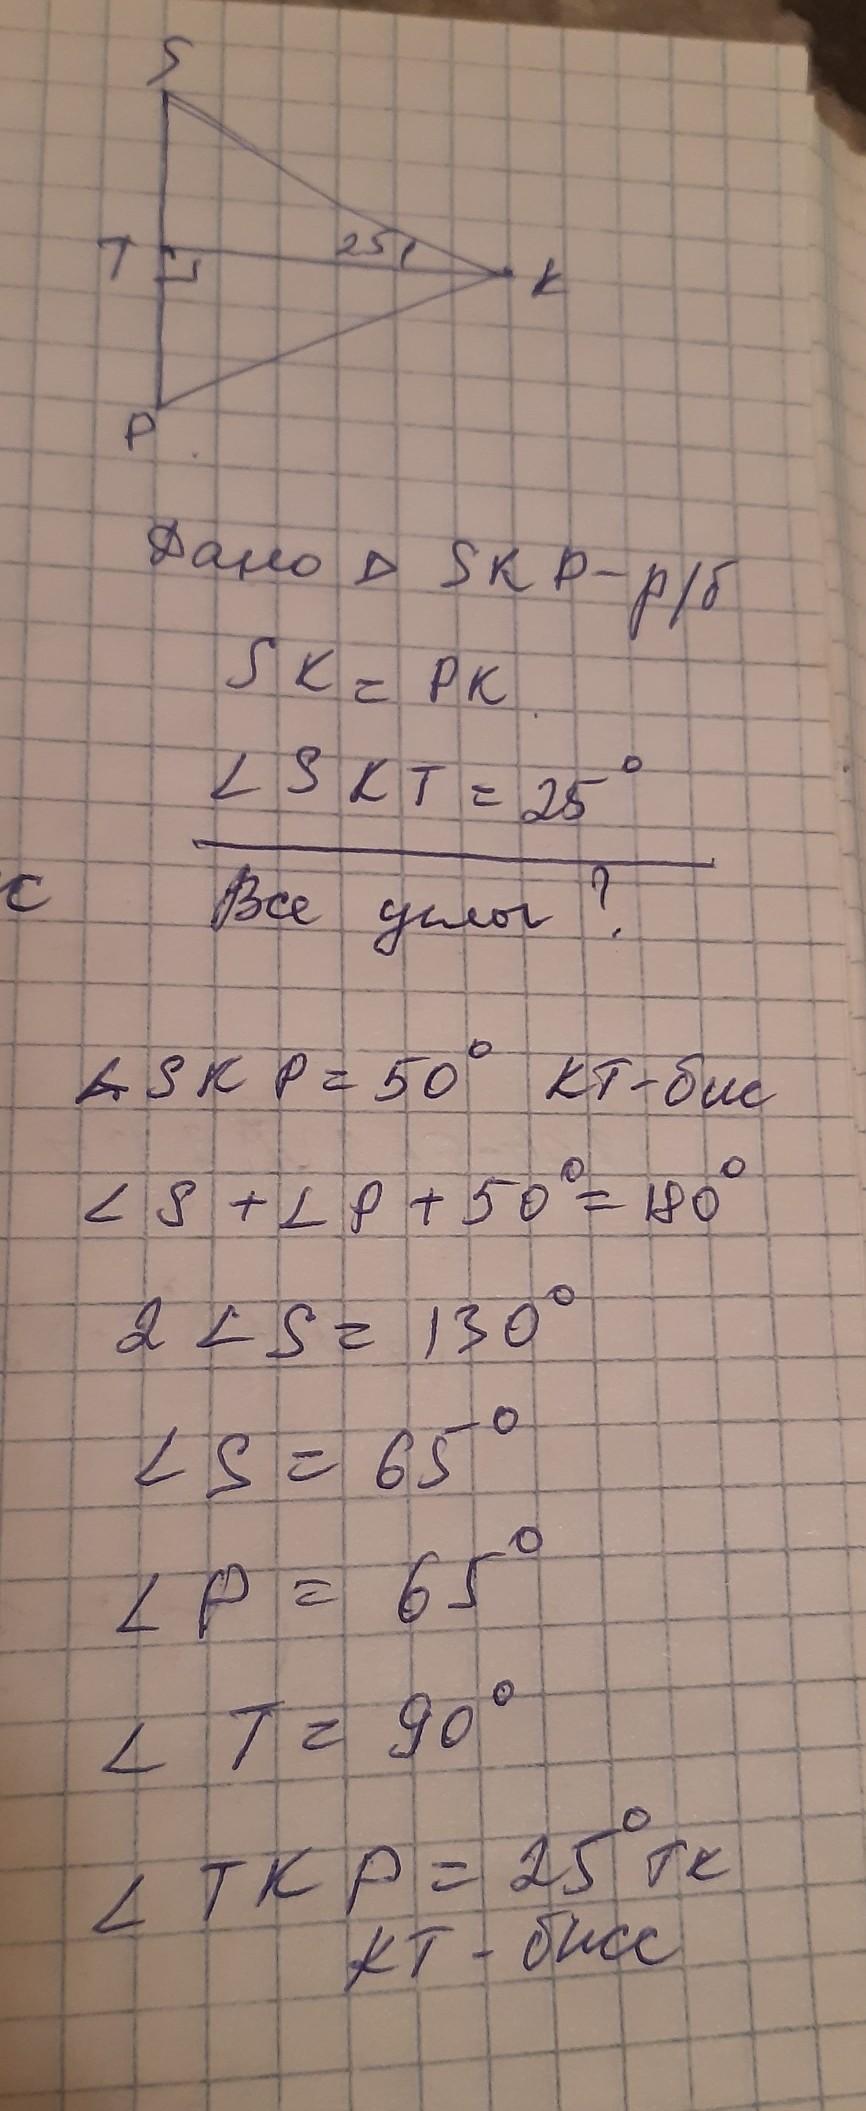 S
T
25
K
P
Дано △ SKP - р/б
SK = PK
∠SKT = 25°
с
Все углы ?
∠SKP = 50° KT - бис
∠S + ∠P + 50° = 180°
2∠S = 130°
∠S = 65°
∠P = 65°
∠T = 90°
∠TKP = 25° тк
KT - бисс